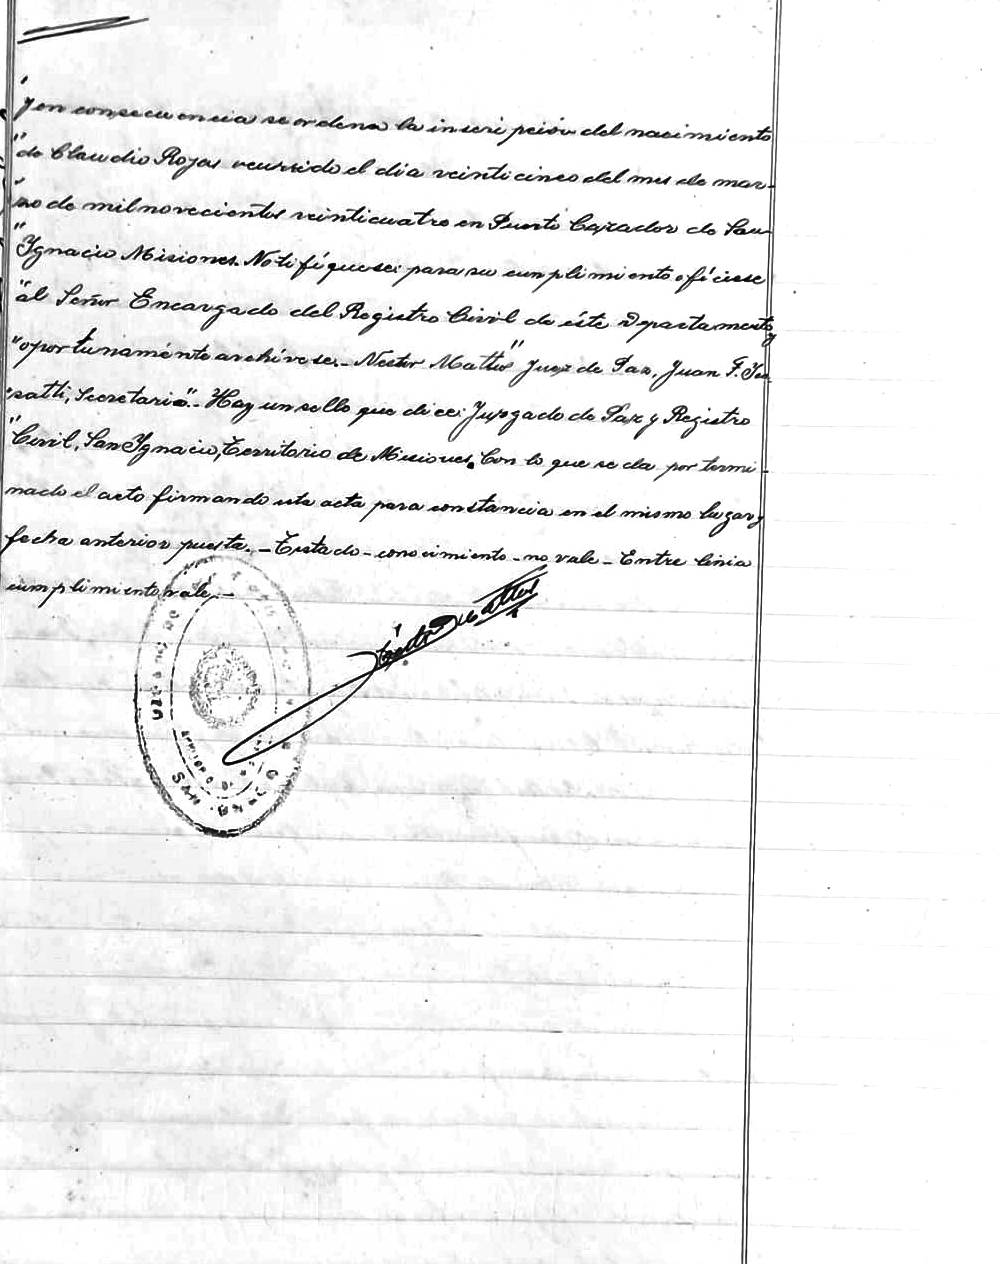 "y en consecuencia se ordena la inscripción del nacimiento
"de Claudio Rojas ocurrido el día veinticinco del mes de mar-
"zo de mil novecientos veinticuatro en Puerto Cazador de San
"Ignacio Misiones. Notifíquese: para su cumplimiento ofíciese
"al Señor Encargado del Registro Civil de éste Departamento y
"oportunaménte archívese.- Nestor Mattos" Juez de Paz, Juan F.
"satti, Secretario".- Hay un sello que dice: Juzgado de Paz y Registro
"Civil, San Ignacio, Territorio de Misiones. Con lo que se da por termi-
nado el acto firmando esta acta para constancia en el mismo lugar y
fecha anterior puesta.- Testado - conocimiento - no vale - Entre linia
cumplimiento vale.-
Nestor Mattos
SAN IGNACIO